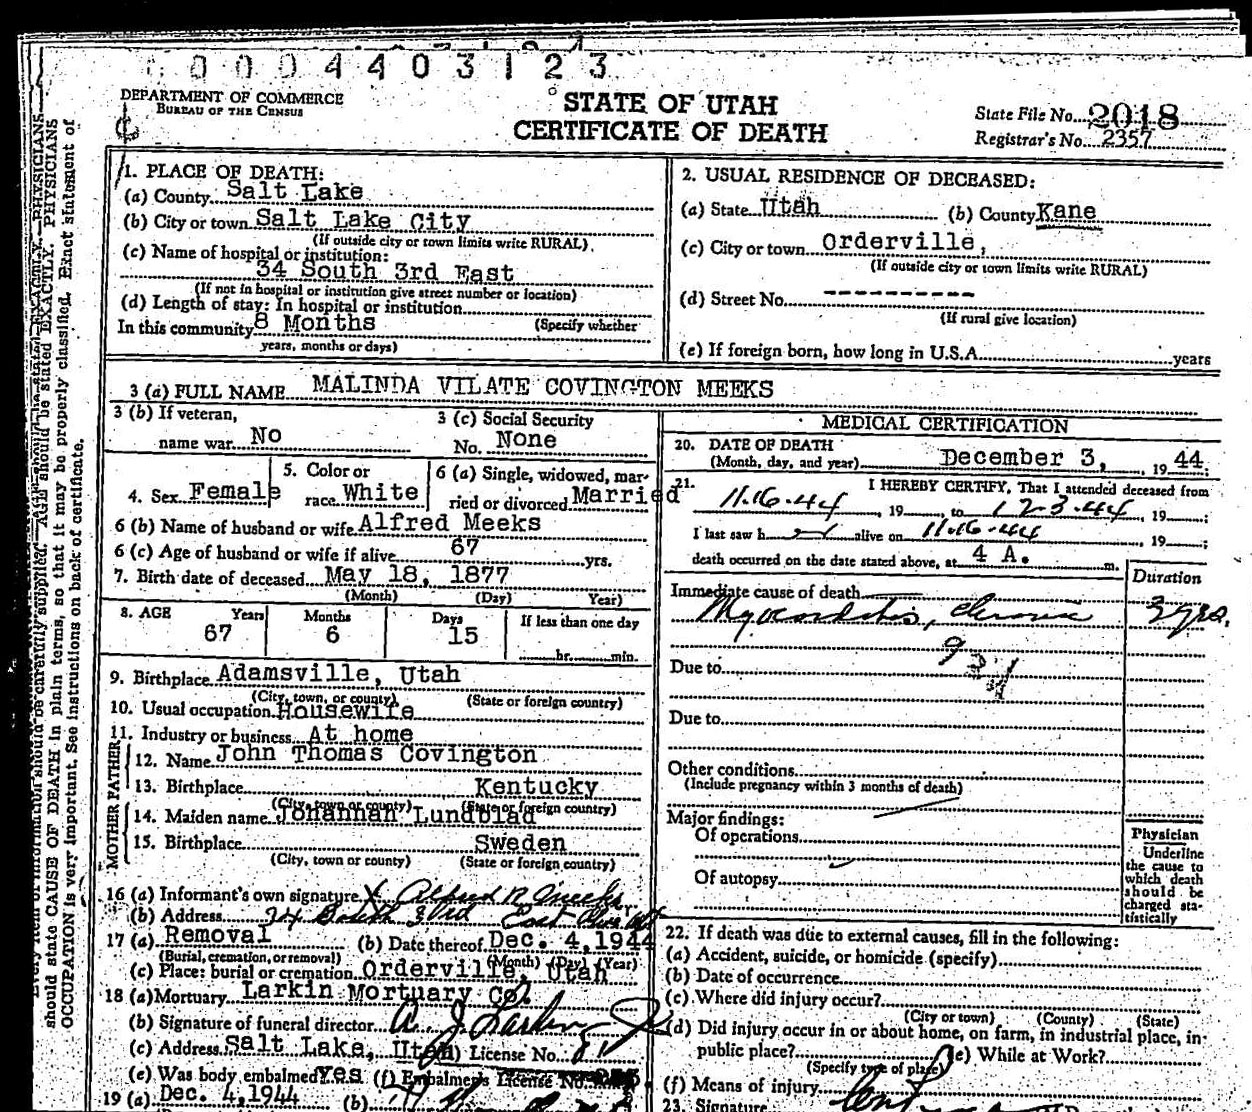 0 0 0 4 4 0 3 1 2 3
DEPARTMENT OF COMMERCE
BUREAU OF THE CENSUS
STATE OF UTAH
CERTIFICATE OF DEATH
State File No. 2018
Registrar's No. 2357
1. PLACE OF DEATH:
(a) County Salt Lake
(b) City or town Salt Lake City
(If outside city or town limits write RURAL)
(c) Name of hospital or institution:
34 South 3rd East
(If not in hospital or institution give street number or location)
(d) Length of stay: In hospital or institution
In this community 8 Months (Specify whether
years, months or days)
2. USUAL RESIDENCE OF DECEASED:
(a) State Utah (b) County Kane
(c) City or town Orderville,
(If outside city or town limits write RURAL)
(d) Street No. ----------
(If rural give location)
(e) If foreign born, how long in U.S.A. years
3 (a) FULL NAME MALINDA VILATE COVINGTON MEEKS
3 (b) If veteran,
name war No
3 (c) Social Security
No. None
4. Sex Female
5. Color or
race White
6 (a) Single, widowed, mar-
ried or divorced Married
6 (b) Name of husband or wife Alfred Meeks
6 (c) Age of husband or wife if alive 67 yrs.
7. Birth date of deceased May 18, 1877
(Month) (Day) Year)
8. AGE Years Months Days If less than one day
67 6 15 hr. min.
9. Birthplace Adamsville, Utah
(City, town, or county) (State or foreign country)
10. Usual occupation Housewife
11. Industry or business At home
FATHER
12. Name John Thomas Covington
13. Birthplace Kentucky
(City, town or county) (State or foreign country)
MOTHER
14. Maiden name Johannah Lundblad
15. Birthplace Sweden
(City, town or county) (State or foreign country)
16 (a) Informant's own signature X Alfred R. Meeks
(b) Address 34 South 3rd East
17 (a) Removal (b) Date thereof Dec. 4, 1944
(Burial, cremation, or removal) (Month) (Day) (Year)
(c) Place: burial or cremation Orderville, Utah
18 (a) Mortuary Larkin Mortuary Co.
(b) Signature of funeral director A. J. Larkin
(c) Address Salt Lake, Utah License No.
(e) Was body embalmed? yes (f) Embalmer's License No.
19 (a) Dec. 4, 1944 (b)
MEDICAL CERTIFICATION
20. DATE OF DEATH
(Month, day, and year) December 3, 19 44;
21. I HEREBY CERTIFY, That I attended deceased from
11-16-44, 19 , to 12-3-44, 19 ;
I last saw h er alive on 11-16-44, 19 ;
death occurred on the date stated above, at 4 A. m.
Duration
Immediate cause of death
Myocarditis, chronic 3 yrs.
Due to
Due to
Other conditions
(Include pregnancy within 3 months of death)
Major findings:
Of operations
Of autopsy
Physician
Underline
the cause to
which death
should be
charged sta-
tistically
22. If death was due to external causes, fill in the following:
(a) Accident, suicide, or homicide (specify)
(b) Date of occurrence
(c) Where did injury occur?
(City or town) (County) (State)
(d) Did injury occur in or about home, on farm, in industrial place, in
public place? (e) While at Work?
(Specify type of place)
(f) Means of injury
23. Signature
Every item of information should be carefully supplied. AGE should be stated EXACTLY. PHYSICIANS
should state CAUSE OF DEATH in plain terms, so that it may be properly classified. Exact statement of
OCCUPATION is very important. See instructions on back of certificate.